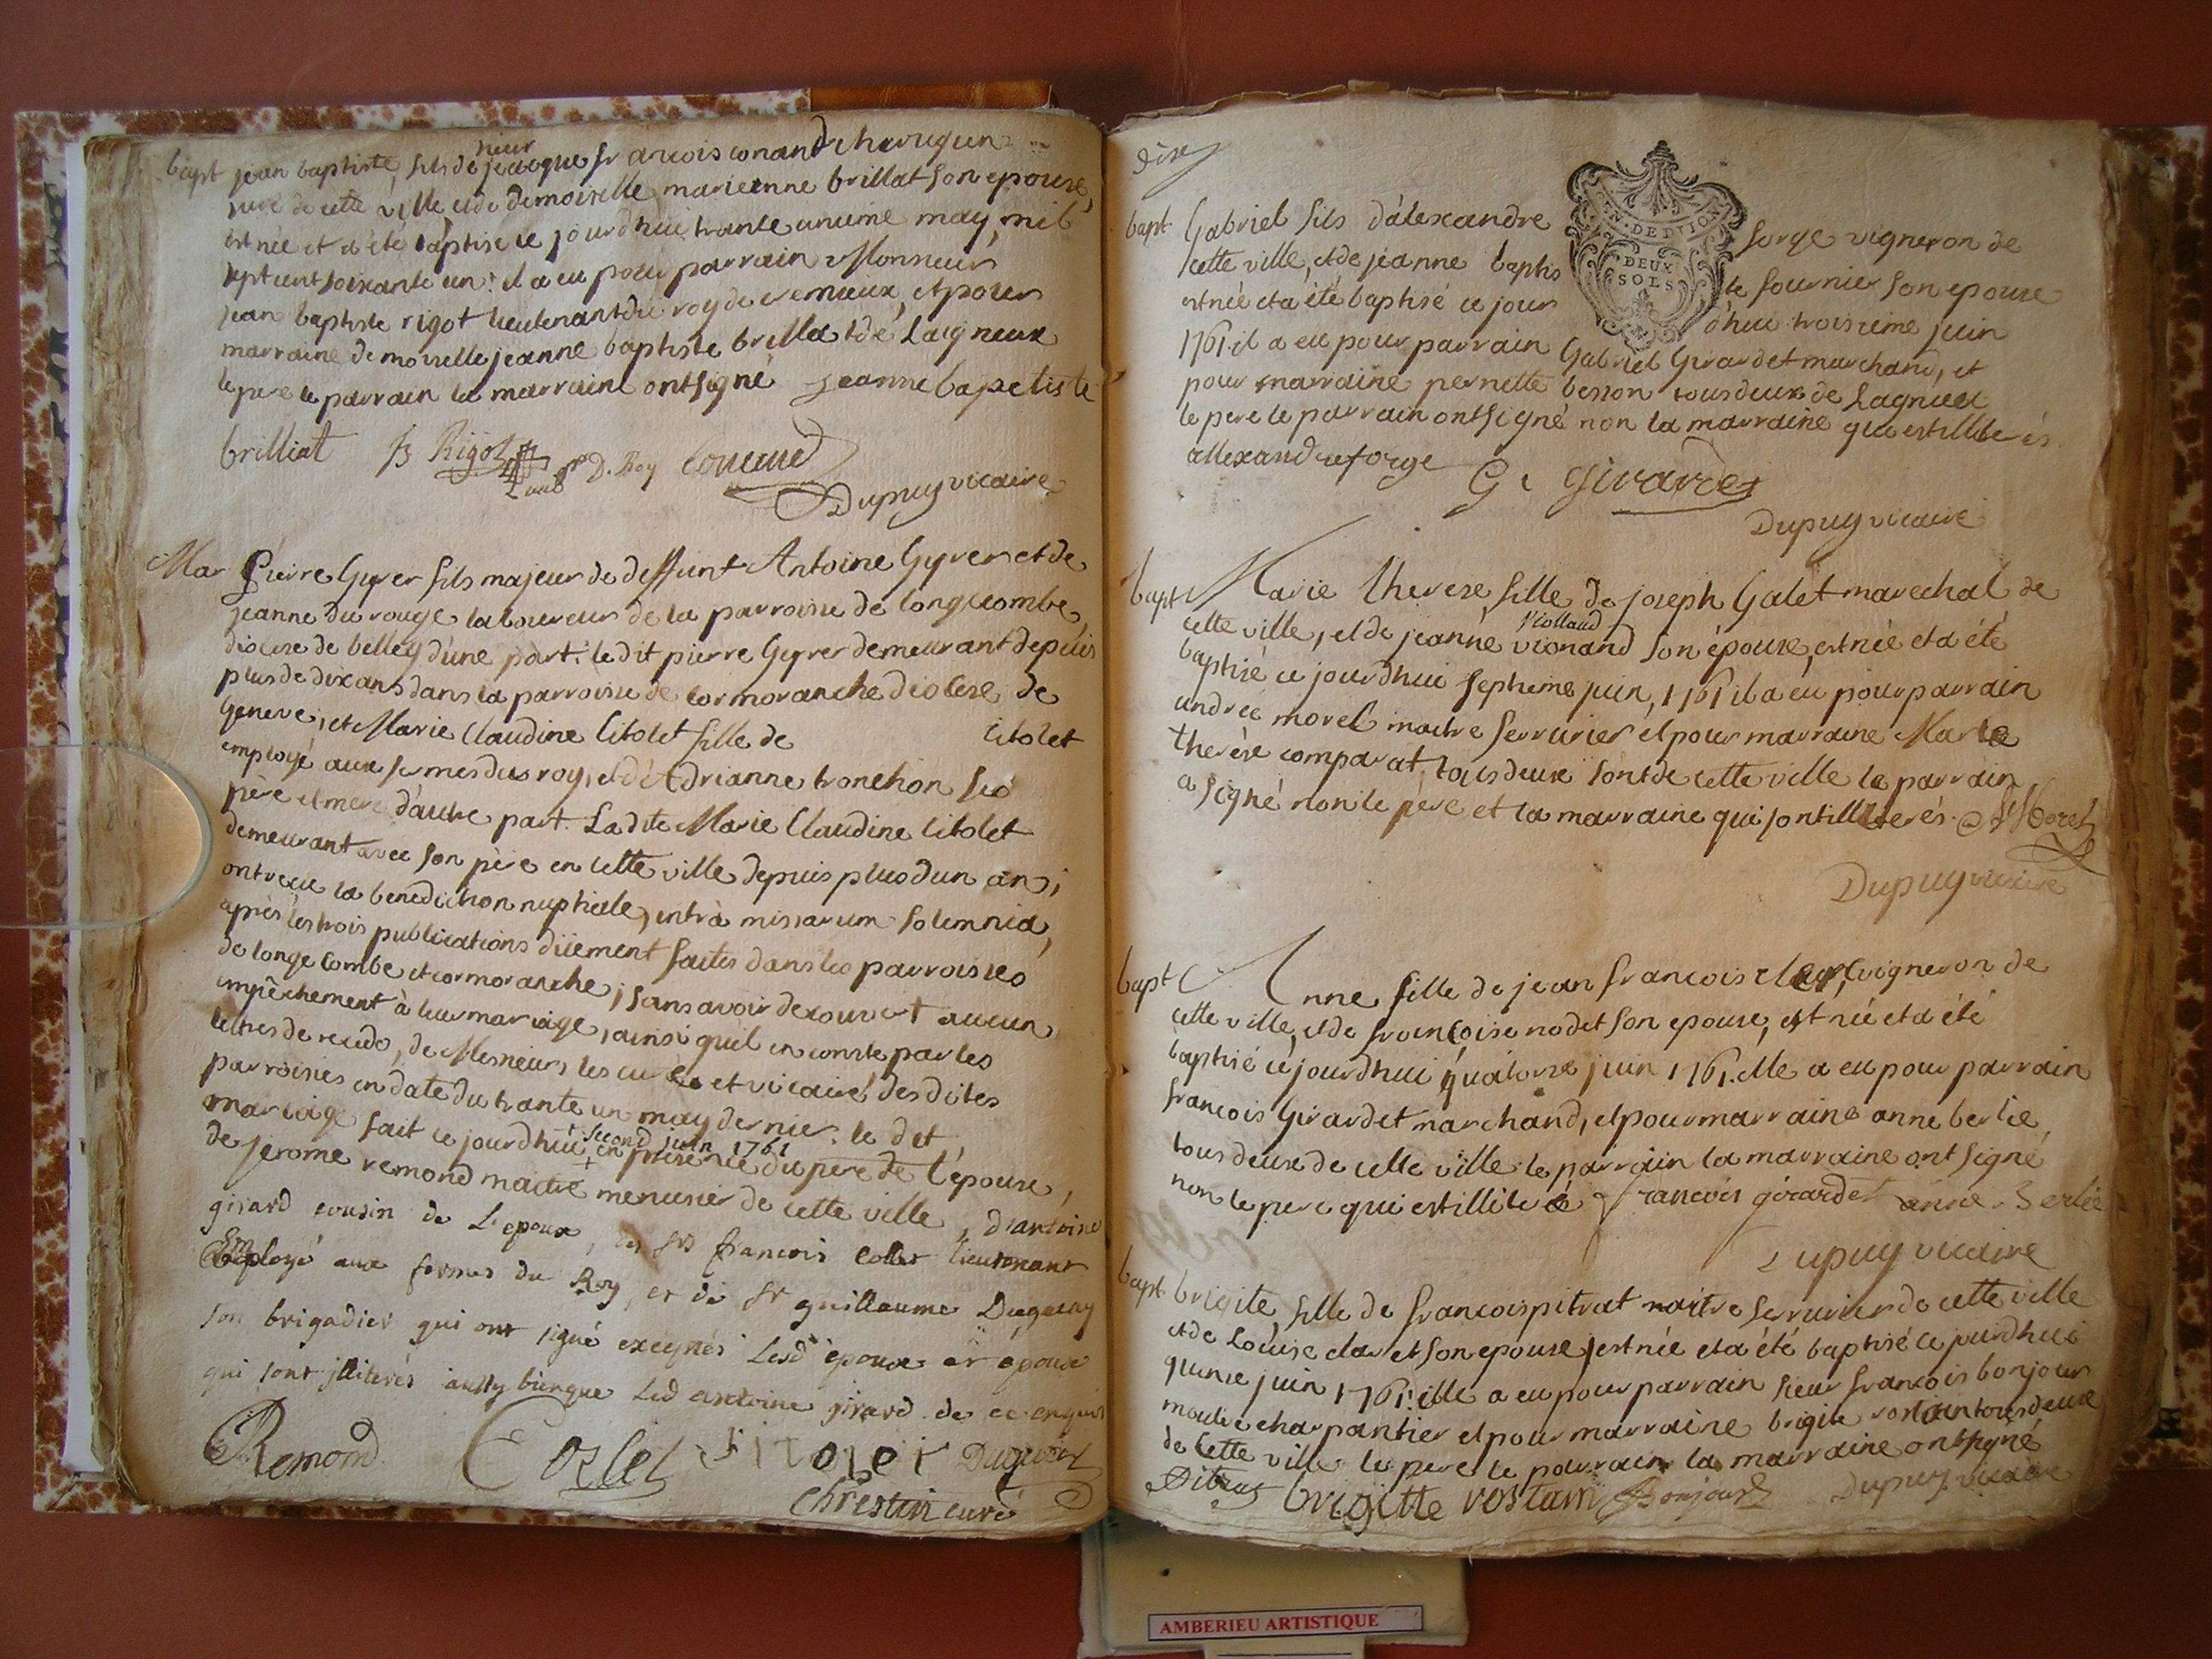 bapt jean baptiste, fils de sieur jacque françois conand chirurgien
juré de cette ville et de demoiselle marieanne brillat son epouse,
est née et a été baptisé ce jourdhui trante unieme may mil
sept cent soixante un: il a eu pour parrain Monsieur
jean baptiste rigot lieutenant du roy de cremieux, et pour
marraine demoiselle jeanne baptiste brillat de Laigneux
le pere le parrain la marraine ont signé jeanne bapetiste
brilliat JB Rigot D. Roy Conand
Dupuy vicaire
Mar Pierre Gyver fils majeur de deffunt Antoine Gyver et de
jeanne du rouge laboureurs de la parroisse de longecombe,
diocese de belley d'une part: le dit pierre Gyver demeurant depuis
plus de dix ans dans la parroisse de cormoranche diocese de
Geneve; et Marie Claudine Citolet fille de Citolet
employé aux fermes du roy, et d'Adrianne tronchon ses
père et mere d'autre part. La dite Marie Claudine Citolet
demeurant avec son père en cette ville depuis plus d'un an;
ont reçu la benediction nuptiale, intrà missarum solemnia,
après les trois publications düement faites dans les parroisses
de longe Combe et cormoranche; sans avoir decouvert aucun
empêchement à leur mariage, ainsi quil en conste par les
lettres de recedo, de Messieurs les curés et vicaire, des dites
parroisses en date du trante un may dernier. le dit
mariage fait ce jourdhui + second juin 1761 en presence du pere de l'épouse,
de jerome remond maitre menusier de cette ville, d'antoine
girard cousin de L'epoux, des srs françois collet lieutenant
Employé aux fermes du Roy, et de sr guillaume Duguay
son brigadier qui ont signé exceptés Lesd époux et épouse
qui sont jlliterés aussy bienque Led antoine girard de ce enquis
Remond Coslet Sitolet Duguay
Chrestin curé
dixe
bapt Gabriel fils d'alexandre forge vigneron de
cette ville, et de jeanne baptiste fournier son epouse
est née et a été baptisé ce jour d'hui troisieme juin
EN·DEDITION
DEUX
SOLS
1761. il a eu pour parrain Gabriel Girardet marchand, et
pour marraine pernette besson tous deux de Lagnieu
le pere le parrain ont signé non la marraine qui est illiterés
allexandre forge G. Girardet
Dupuy vicaire
bapt Marie therese, fille de joseph Galet marechal de
cette ville, et de jeanne vionand son épouse, est née et a été
baptisé ce jourdhui septieme juin, 1761 il a eu pour parrain
andrée morel maitre serrurier et pour marraine Marie
therèse comparat, tous deux sont de cette ville le parrain
a signé non le père et la marraine qui sont illiterés. A Morel
Dupuy vicaire
bapt Anne fille de jean françois clerc, vigneron de
cette ville, et de françoise nodet son epouse, est née et a été
baptisé ce jourdhui quatorse juin 1761. elle a eu pour parrain
françois Girardet marchand, et pour marraine anne berlie,
tous deux de cette ville. le parrain la marraine ont signé
non le pere qui est illiteré françois girardet anne Berlié
Dupuy vicaire
bapt brigite, fille de francois pitrat maitre serrurier de cette ville
et de Louise claret son epouse, est née et a été baptisé ce jourdhui
quinse juin 1761. elle a eu pour parrain sieur françois bonjour
maitre charpantier et pour marraine brigite rostain tous deux
de cette ville le pere le parrain la marraine ont signé
Pitrat brigitte rostain Bonjour Dupuy vicaire
AMBERIEU ARTISTIQUE